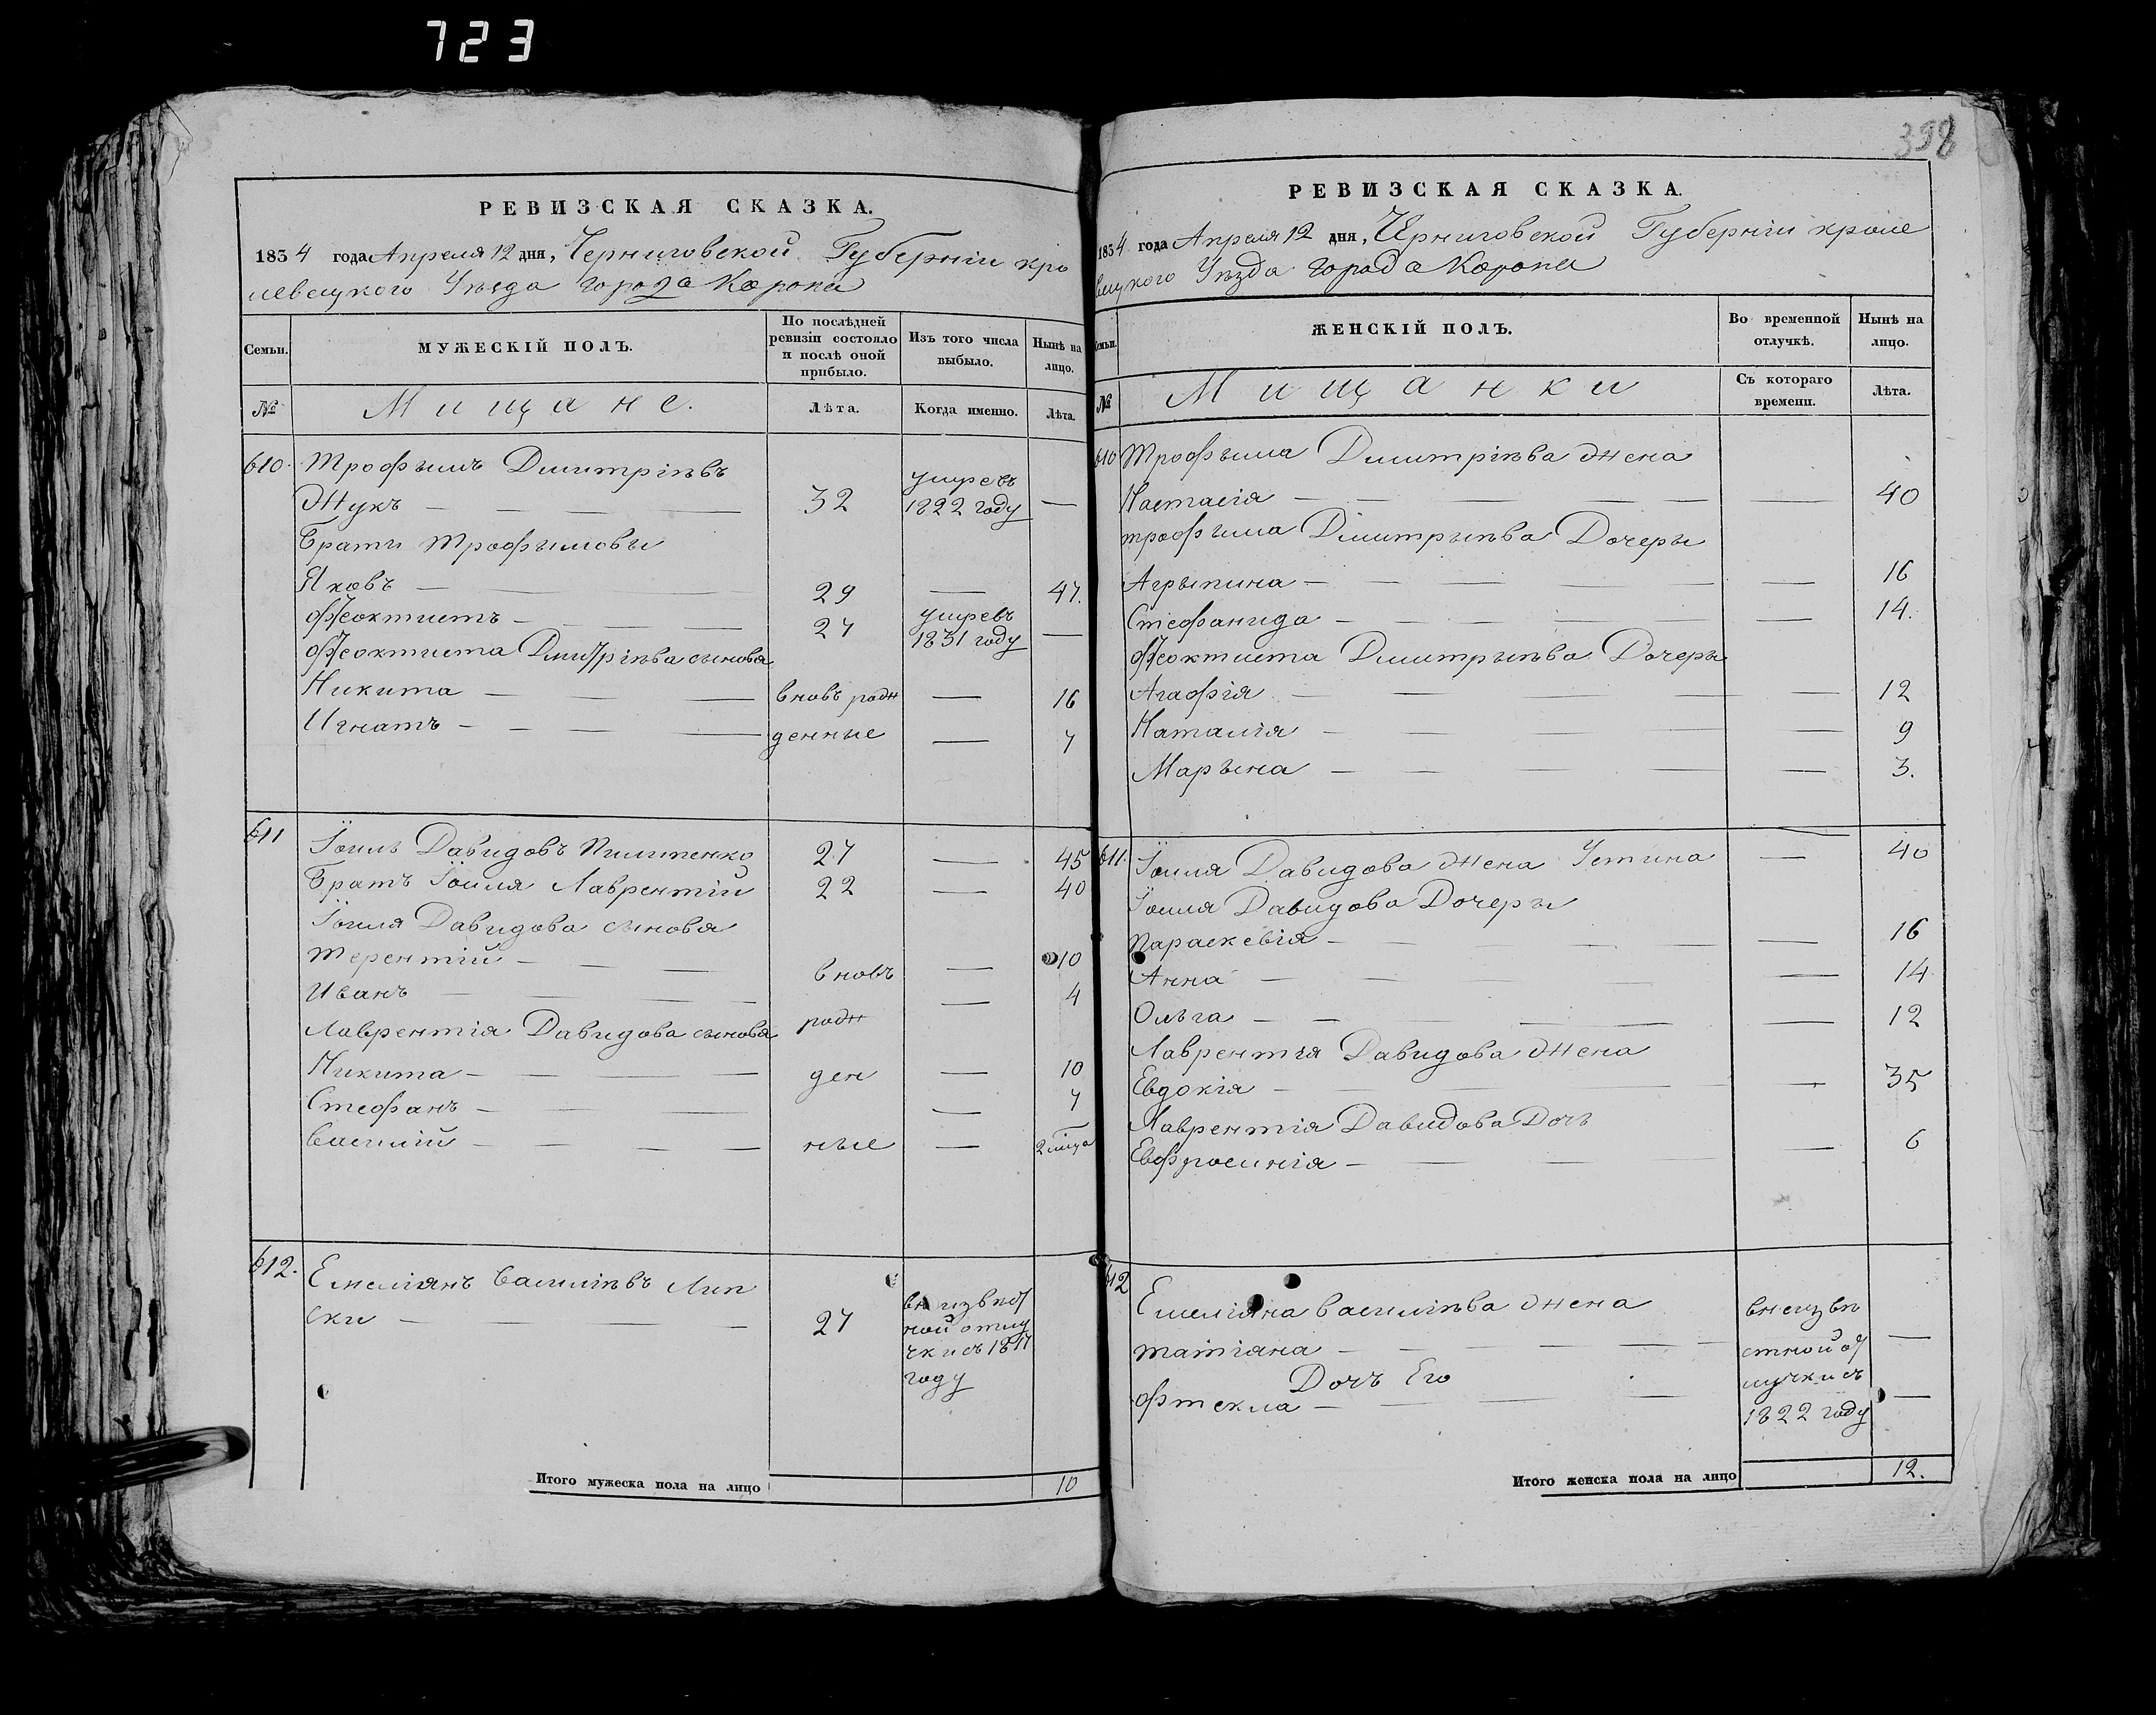 723
РЕВИЗСКАЯ СКАЗКА.
1834 года Апреля 12 дня, Черниговской Губерніи кро
левецкого Уѣзда города Коропа
Семьи.
МУЖЕСКІЙ ПОЛЪ.
По послѣдней ревизіи состояло и послѣ оной прибыло.
Изъ того числа выбыло.
Нынѣ на лицо.
№
Мищане.
Лѣта.
Когда именно.
Лѣта.
610. Трофымъ Дмитріевъ
Жукъ — 32 умревъ 1822 году —
Брати Трофымовы
Яковъ — 29 — 47.
Феоктистъ — 27 умревъ 1831 году —
Феоктиста Дмитріѣва сынова
Никита — вновь рож — 16
Игнатъ — денные — 7
611 Іоиль Давидовъ Пилипенко 27 — 45
Братъ Іоиля Лаврентій 22 — 40
Іоиля Давидова сынова
Терентій — вновъ — 10
Иванъ — — 4
Лаврентія Давидова сынова рож
Никита — ден — 10
Стефанъ — — 7
Василій — ные — 2 мѣца
612. Емеліянъ Василіѣвъ Лип
ски — 27
ной отлу
чки съ 1817
году
Итого мужеска пола на лицо 10
398
РЕВИЗСКАЯ СКАЗКА.
1834 года Апреля 12 дня, Черниговской Губерніи кроле
вецкого Уѣзда города Коропа
Семьи.
ЖЕНСКІЙ ПОЛЪ.
Во временной отлучкѣ.
Нынѣ на лицо.
№
Мищанки
Съ котораго времени.
Лѣта.
610 Трофыма Дмитріѣва жена
Настасія — — 40
Трофыма Димитрыѣва Дочеры
Агрыпина — — 16
Стефанида — — 14.
Феоктиста Дмитрыѣва Дочеры
Агафія — — 12
Наталія — — 9
Марына — — 3.
611. Іоиля Давидова жена Устина — 40
Іоиля Давидова Дочеры
Параскевія — — 16
Анна — — 14
Ольга — — 12
Лаврентія Давидова жена
Евдокія — — 35
Лаврентія Давидова Дочъ
Евфросинія — — 6
612 Емеліяна Василіѣва жена внеизвѣ
татіяна — стной от —
Дочъ Его лучки съ
Фтекла — 1822 году —
Итого женска пола на лицо 12.